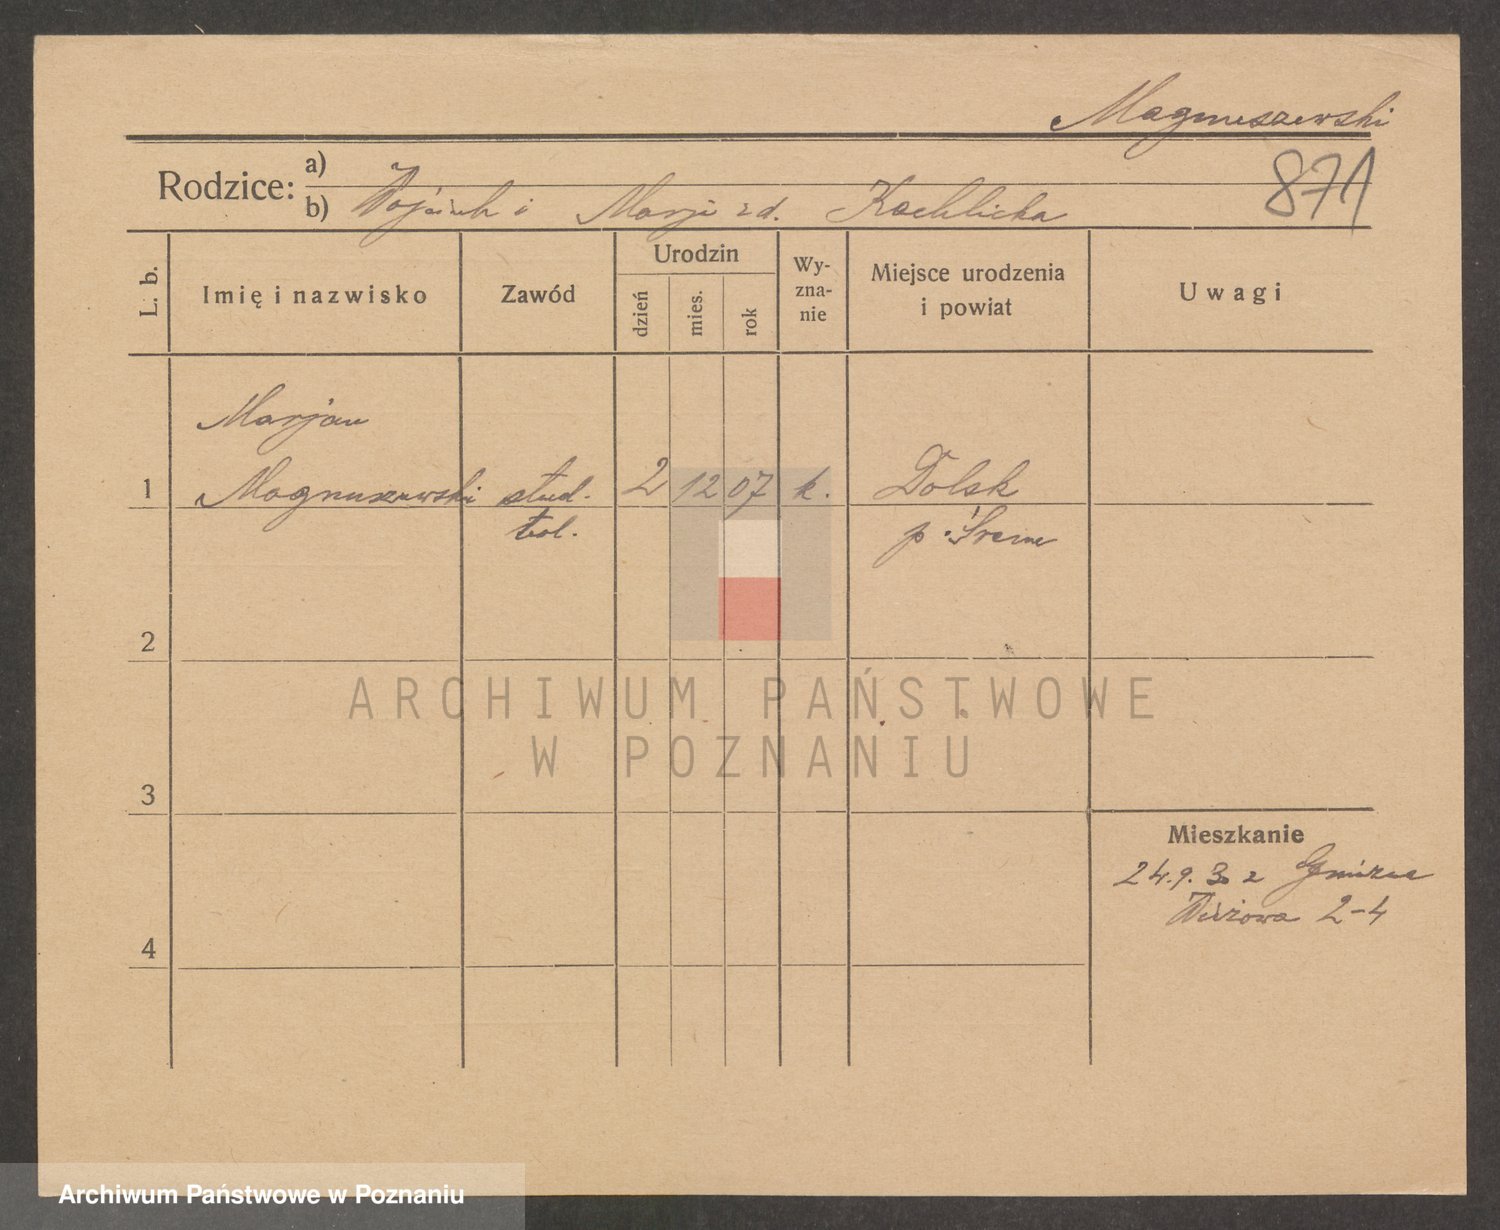 Magnuszewski
871
Rodzice:
a)
b) Wojciech i Marji zd. Kochlicka
L. b.
Imię i nazwisko
Zawód
Urodzin
dzień
mies.
rok
Wy-
zna-
nie
Miejsce urodzenia
i powiat
Uwagi
Marjan
1 Magnuszewski stud. 2 12 07 k. Dolsk
p. Śrem
2
3
4
Mieszkanie
24.9.30 z
Wieżowa 2-4
ARCHIWUM PAŃSTWOWE
W POZNANIU
Archiwum Państwowe w Poznaniu